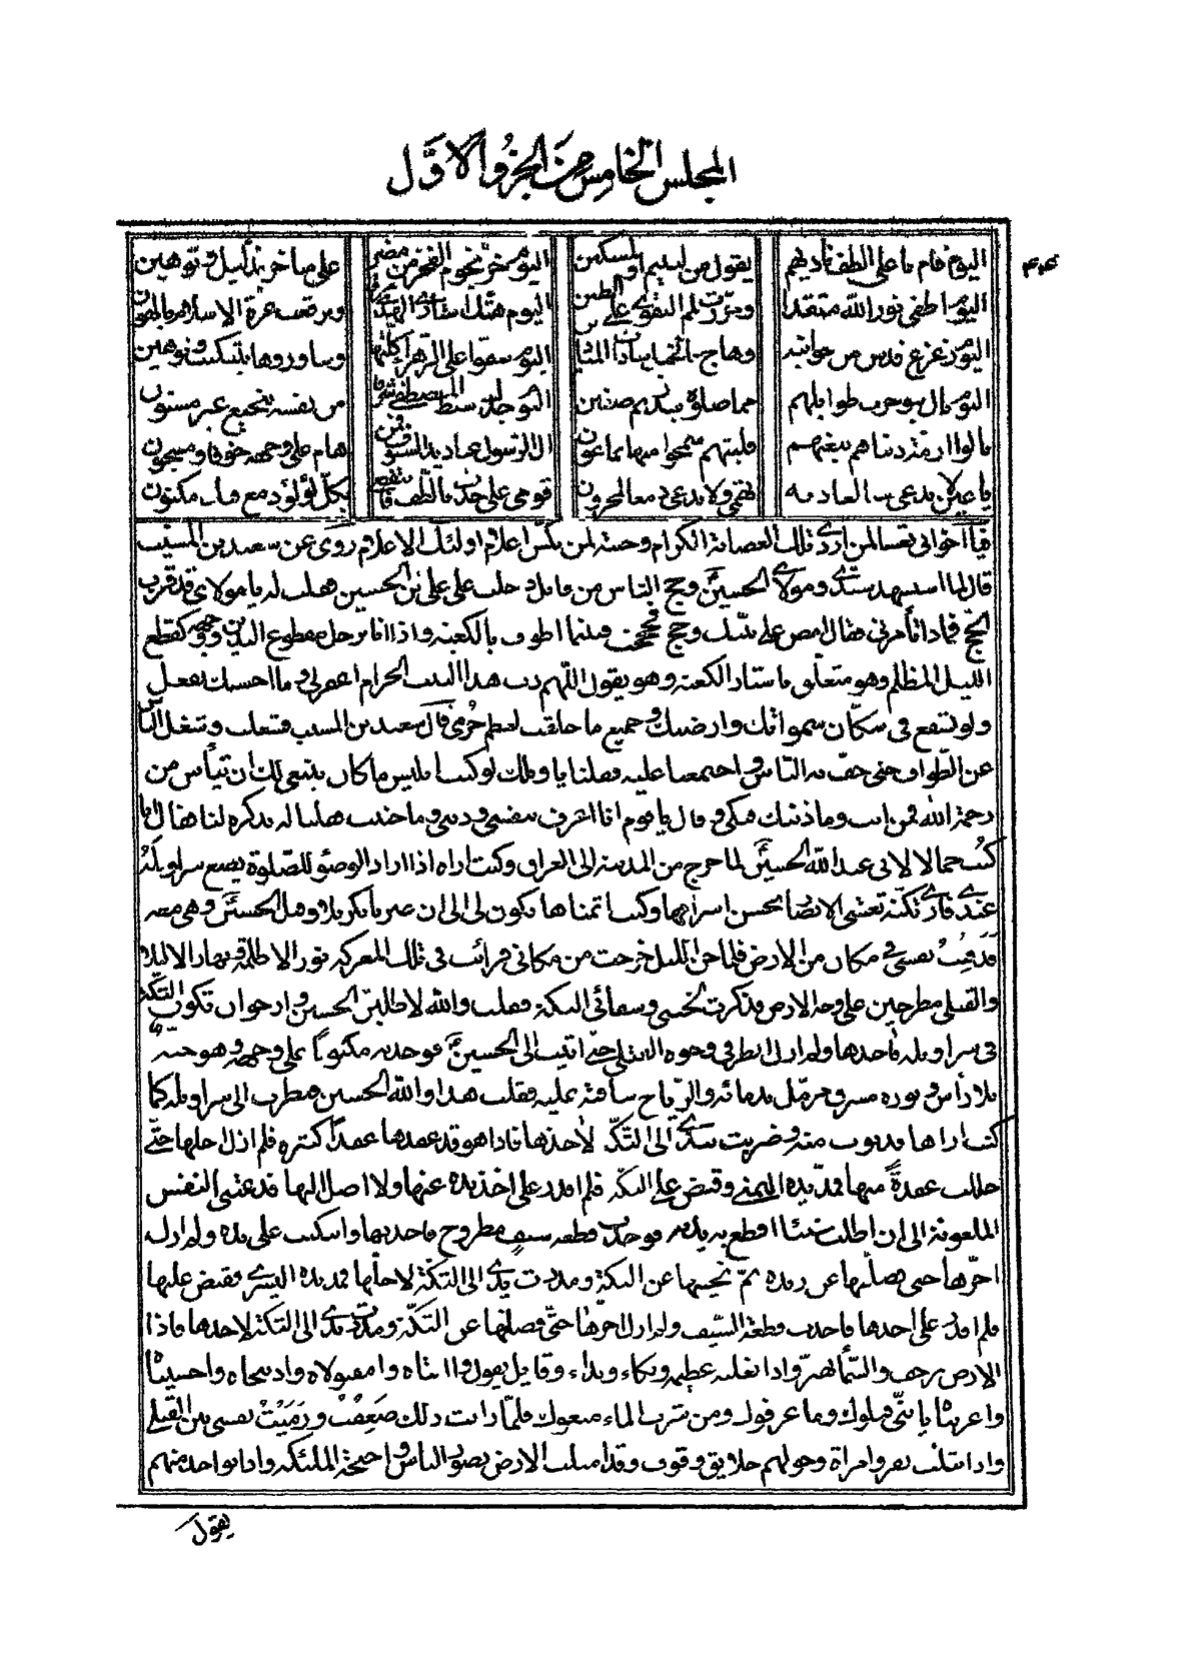 المجلس الخامس من الجزؤ الاوّل
اليوم قام باعلى الطف نادبهم يقول من ليتيم او لمسكين اليوم خرّ نجوم الفخر من مضر على مناخر تذليل وتوهين
اليوم اطفى نور الله متقدا وجرّرت لهم التقوى على الطين اليوم هتك استار الهدى وبرقعت عزة الاسلام بالهون
اليوم زعزع قدس من جوانبه وهاج بالخيل سادات الميادين اليوم شقوا على الزهراء كلتها وساوروها بتنكيت وتوهين
اليوم نال بنو حرب طوايلهم مما صلوه ببدر ثم صفين اليوم جدل سبط المصطفى من نفسه بنجيع غير مسنون
نالوا ازمة دنياهم ببغيهم فليتهم سمحوا منها بماعون ال الرسول عباديد السيوف فمن هام على وجهه خوفا ومسجون
يا عين لا تدعي للغاديه تهمي ولا تدعي دمعا لمحزون قومي على جدث بالطف بكلّ لؤلؤ دمع فيك مكنون
فيا اخواني تعسا لمن اردى تلك العصابة الكرام وخيبة لمن نكّس اعلام اولئك الاعلام روى عن سعيد بن المسيّب
قال لما استشهد سيّدي ومولاي الحسينؑ وحج الناس من قابل دخلت على علي بن الحسين فقلت له يا مولاي قد قرب
الحج فماذا تأمرني فقال امض على نيّتك وحج فحججت فبينما اطوف بالكعبة واذا انا برجل مقطوع اليدين ووجهه كقطع
الليل المظلم وهو متعلّق باستار الكعبة وهو يقول اللّهم رب هذا البيت الحرام اغفر لي وما احسبك تفعل
ولو تشفع في سكّان سمواتك وارضيك وجميع ما خلقت لعظم جُرمي قال سعيد بن المسيب فشغلت وشغل الناس
عن الطواف حتى حفّ به الناس واجتمعنا عليه فقلنا يا ويلك لو كنت ابليس ما كان ينبغي لك ان تيأس من
رحمة الله فمن انت وما ذنبك فبكى وقال يا قوم انا اعرف بنفسي وذنبي وما جنيت فقلنا له تذكره لنا فقال انا
كنت جمالا لابي عبد الله الحسينؑ لما خرج من المدينة الى العراق وكنت اراه اذا اراد الوضوء للصلوة يضع سراويله
عندي فارى تكّته تغشي الابصار بحسن اشراقها وكنت اتمناها تكون لي الى ان صرنا بكربلا وقتل الحسينؑ وهي معه
فدفنت نفسي في مكان من الارض فلما جن الليل خرجت من مكاني فرايت في تلك المعركة نورا لا ظلمة ونهارا لا ليلا
والقتلى مطرحين على وجه الارض فذكرت لخبثي وشقائي التكة فقلت والله لاطلبن الحسين وارجو ان تكون التكة
في سراويله فآخذها ولم ازل انظر في وجوه القتلى حتى اتيت الى الحسينؑ فوجدته مكبوبا على وجهه وهو جثة
بلا راس ونوره مشرق مرمّل بدمائه والرياح سافية عليه فقلت هذا والله الحسين فنظرت الى سراويله كما
كنت اراها فدنوت منه وضربت بيدي الى التكة لآخذها فاذا هو قد عقدها عقدا كثيرة فلم ازل احلها حتى
حللت عقدة منها فمدّ يده اليمنى وقبض على التكة فلم اقدر على اخذ يده عنها ولا اصل اليها فدعتني النفس
الملعونة الى ان اطلب شيئا اقطع به يديه فوجدت قطعة سيف مطروح فاخذتها واتكيت على يده ولم ازل
احزّها حتى فصلتها عن زنده ثمّ نحيتها عن التكة ومددت يدي الى التكة لاحلّها فمد يده اليسرى وقبض عليها
فلم اقدر على اخذها فاخذت قطعة السّيف ولم ازل احزّها حتى فصلتها عن التكّة ومددت يدي الى التكة لاخذها فاذا
الارض ترجف والسّمآء تهتزّ واذا بغلبة عظيمة وبكاء ونداء وقايل يقول وا ابناه وا مقتولاه وا ذبيحاه وا حسيناه
وا غريباه يا بنيّ قتلوك وما عرفوك ومن شرب الماء منعوك فلمّا رأيت ذلك صَعِقتُ ورَمَيتُ نفسي بين القتلى
واذا بثلث نفر وامراة وحولهم خلايق وقوف وقد امتلئت الارض بصور الناس واجنحة الملئكة واذا بواحد منهم
يقول